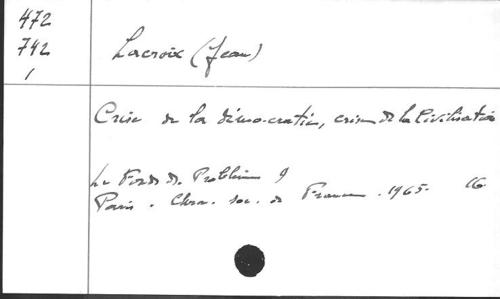 472
742
1
Lacroix (Jean)
Crise de la démocratie, crise de la Civilisation
Le Fond du Problème 9
Paris. Chro. soc. de France. 1965. 16